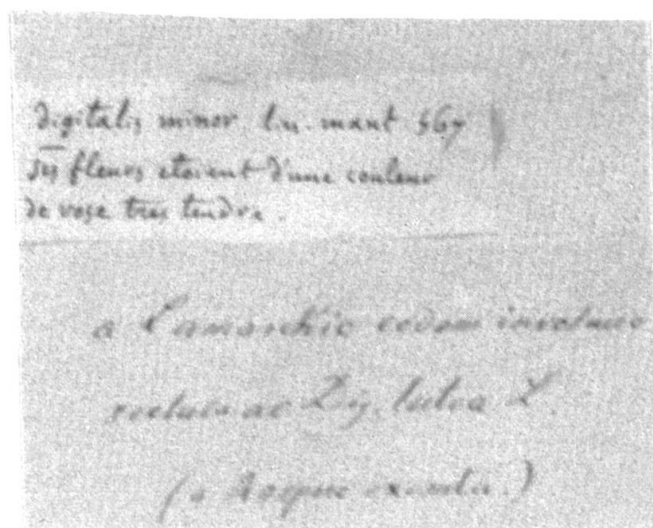 digitalis minor lin. mant 567
ses fleurs etoient d'une couleur
de rose tres tendre.
a Lamarckio eodem involucro
ac Dig. lutea L.
(a